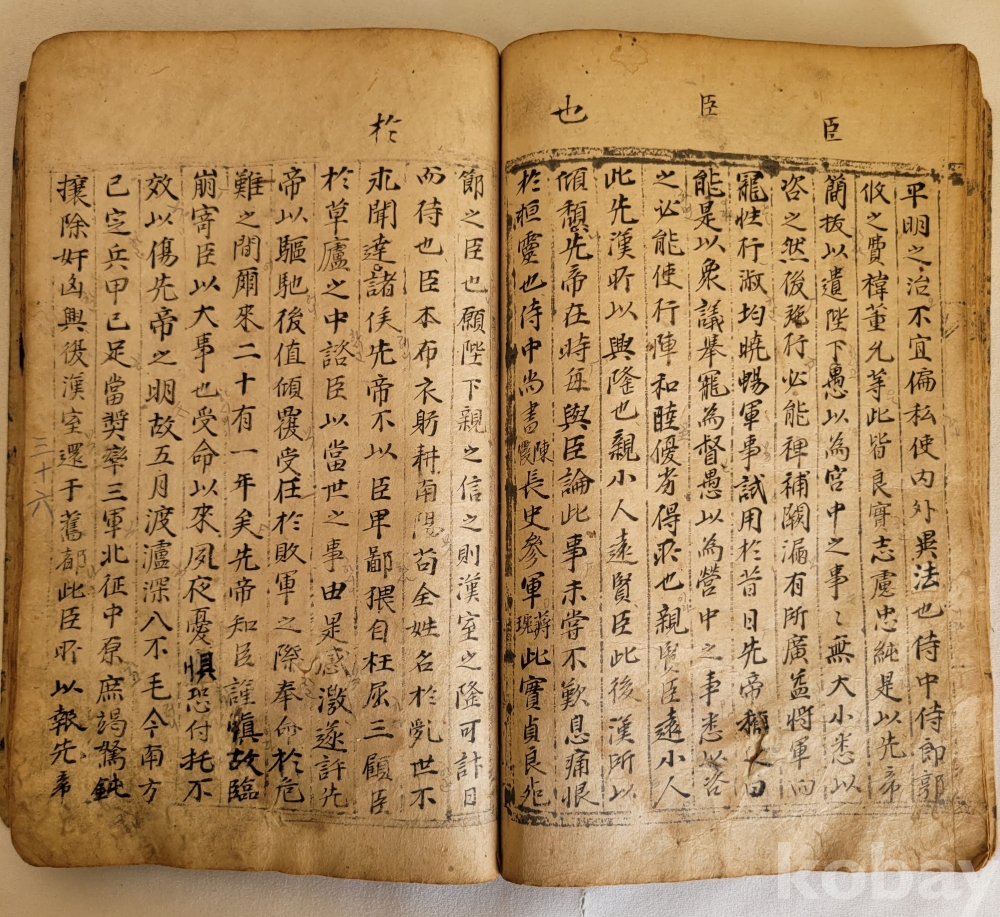 臣
臣
也
平明之治不宜偏私使內外異法也侍中侍郎郭
攸之費褘董允等此皆良實志慮忠純是以先帝
簡拔以遺陛下愚以為宮中之事〻無大小悉以
咨之然後施行必能裨補闕漏有所廣益將軍向
寵性行淑均曉暢軍事試用於昔日先帝稱之曰
能是以衆議舉寵為督愚以為營中之事悉以咨
之必能使行陣和睦優劣得所也親賢臣遠小人
此先漢所以興隆也親小人遠賢臣此後漢所以
傾頹先帝在時每與臣論此事未嘗不歎息痛恨
於桓靈也侍中尚書陳震長史參軍蔣琬此實貞良死
於
節之臣也願陛下親之信之則漢室之隆可計日
而待也臣本布衣躬耕南陽苟全姓名於亂世不
求聞達諸侯先帝不以臣卑鄙猥自枉屈三顧臣
於草廬之中諮臣以當世之事由是感激遂許先
帝以驅馳後值傾覆受任於敗軍之際奉命於危
難之間爾來二十有一年矣先帝知臣謹愼故臨
崩寄臣以大事也受命以來夙夜憂惧恐付托不
效以傷先帝之明故五月渡瀘深入不毛今南方
已定兵甲已足當奬率三軍北征中原庶竭駑鈍
攘除奸凶興復漢室還于舊都此臣所以報先帝
三十六
kobay